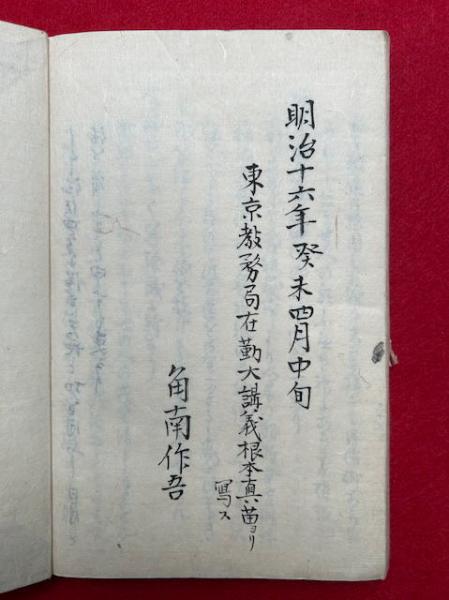 明治十六年癸未四月中旬
東京教務局在勤大講義根本真苗ヨリ
寫ス
角南作吾